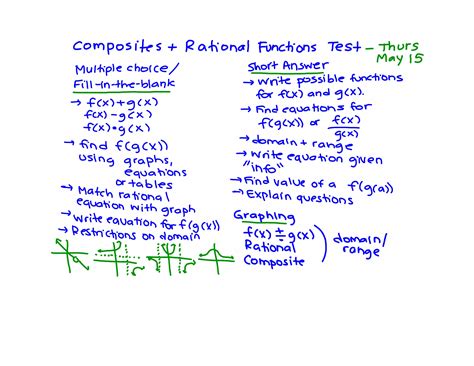 Composites + Rational Functions Test – Thurs
May 15
Multiple choice/
Fill-in-the-blank
→ f(x)+g(x)
f(x)-g(x)
f(x)•g(x)
→ find f(g(x))
using graphs,
equations
or tables
→ Match rational
equation with graph
→ Write equation for f(g(x))
→ Restrictions on domain
Short Answer
→ Write possible functions
for f(x) and g(x).
→ Find equations for
f(g(x)) or f(x)/g(x)
→ domain + range
→ Write equation given
"info"
→ Find value of a f(g(a))
→ Explain questions
Graphing
f(x) ± g(x)
Rational
Composite
domain/
range